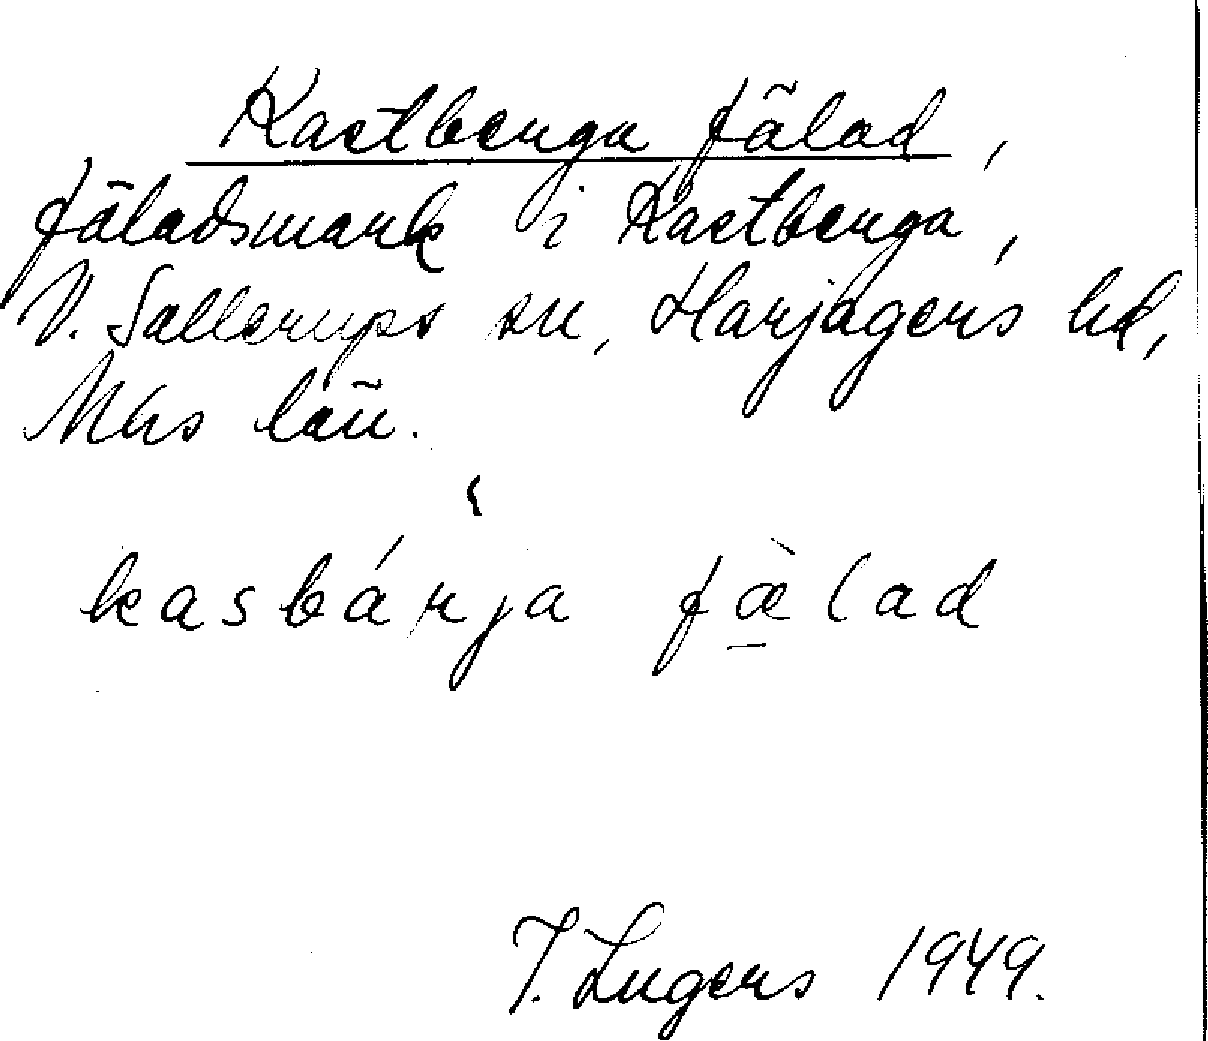 Kastberga fälad,
fäladsmark i Kastberga,
V. Sallerups sn, Harjagers hd,
Mhs län.
kasbárja fæ̠̀lad
I. Ingers 1949.